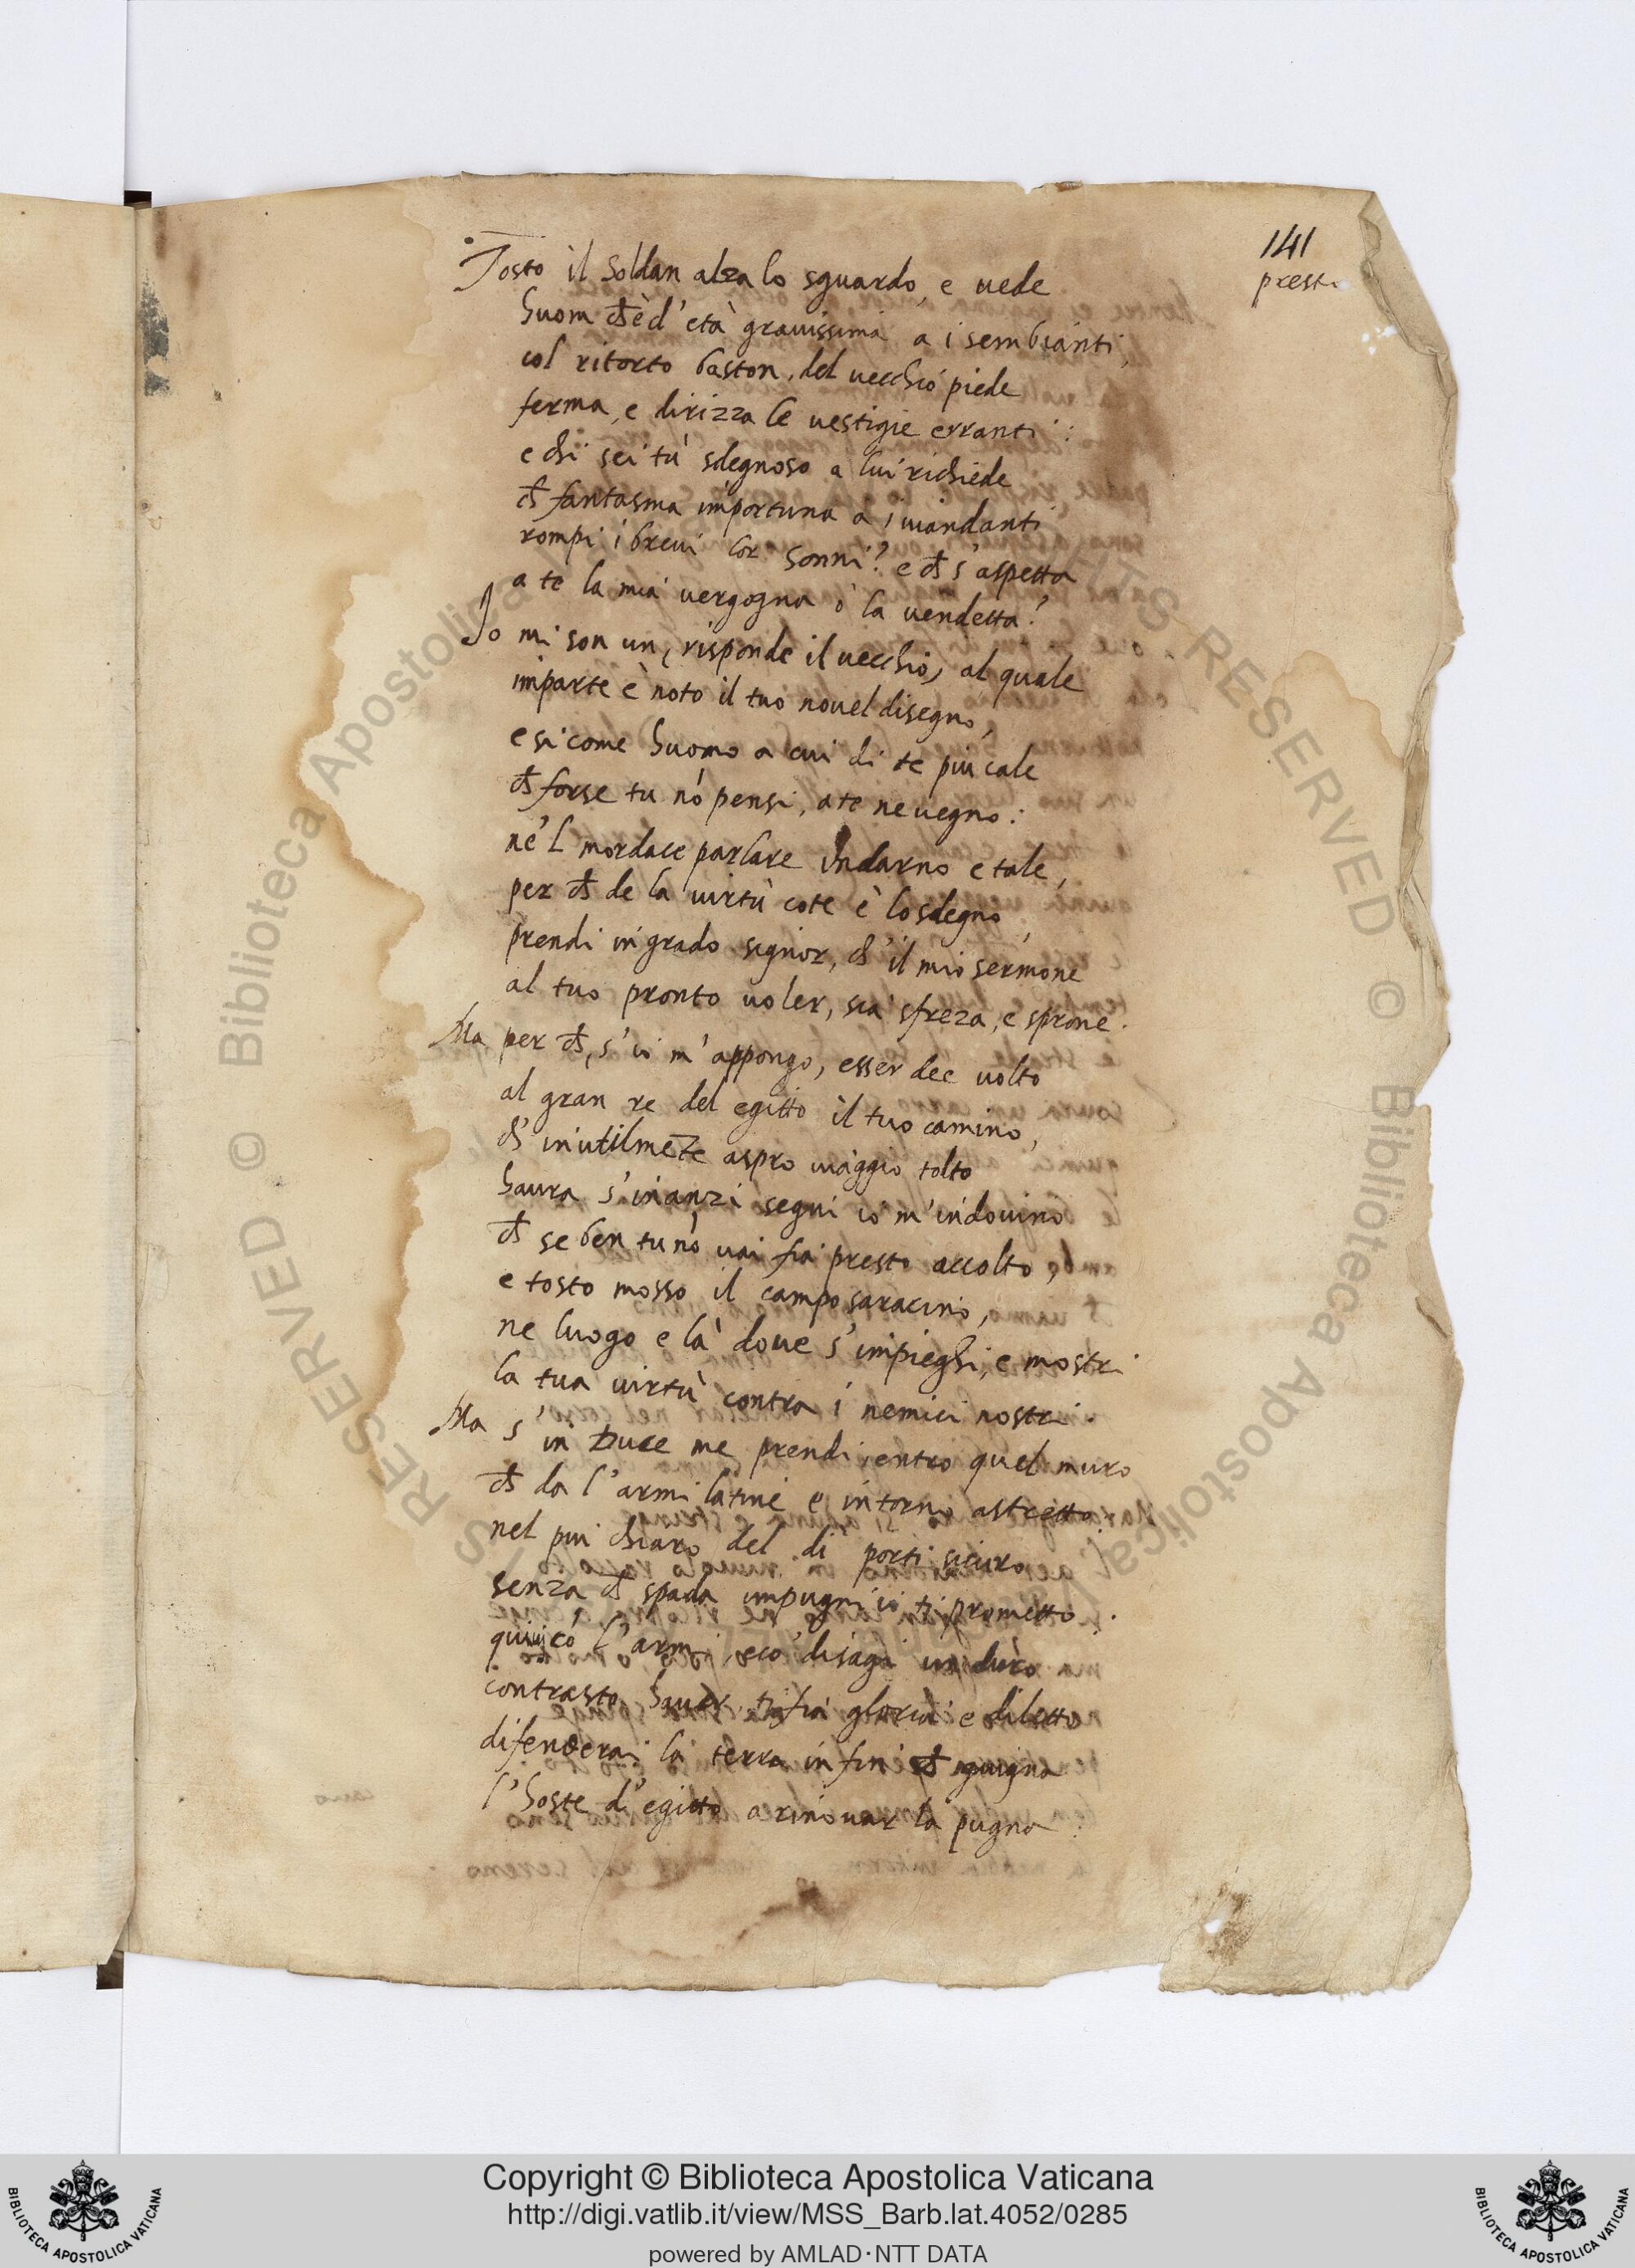 141
presto
Tosto il Soldan alza lo sguardo, e uede
huom ch̄ è d'età grauissima a i sembianti,
col ritorto baston, del uecchio piede
ferma, e dirizza le uestigie erranti:
e chi sei tù sdegnoso a lui richiede
ch̄ fantasma importuna a i uiandanti
rompi i breui lor sonni? e ch̄ s'aspetta
a te la mia uergogna ò la uendetta?
Io mi son un, risponde il uecchio, al quale
imparte è noto il tuo nouel disegno,
e si come huomo a cui di te piu cale
ch̄ forse tu nō pensi, a te ne uegno:
ne'l mordace parlare indarno e tale,
per ch̄ de la uirtù cote è lo sdegno,
prendi in grado signor, ch'il mio sermone
al tuo pronto uoler, sia sfreza, e sprone.
Ma per ch̄, s'io m'appongo, esser dee uolto
al gran re del egitto il tuo camino,
ch' inutilmēte aspro uiaggio tolto
haura s'inanzi segui io m'indouino
ch̄ se ben tu nō uai fia presto accolto,
e tosto mosso il campo saracino,
ne luogo e là doue s'impieghi, e mostri
la tua uirtù contra i nemici nostri.
Ma s'in Duce me prendi, entro quel muro
ch̄ da l'armi latine e intorno astretto
nel piu chiaro del di porti sicuro
senza ch̄ spada impugni io ti prometto.
quiui cō l'armi, e cō disagi un duro
contrasto hauer ti fia gloria e diletto
difenderai la terra infin ch̄ giugna
l'hoste d'egitto a rinouar la pugna
Copyright © Biblioteca Apostolica Vaticana
http://digi.vatlib.it/view/MSS_Barb.lat.4052/0285
powered by AMLAD·NTT DATA